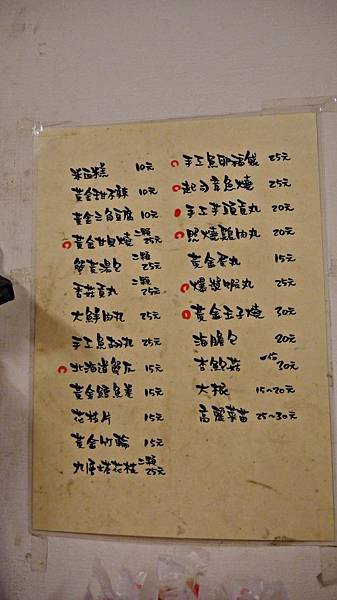 米血糕 10元
黃金甜不辣 10元
黃金三角豆腐 10元
黃金貝燒 二顆25元
蟹黃湯包 二顆25元
香菇貢丸 二顆25元
大鮮肉丸 25元
手工魚丸 25元
北海道蟹 15元
黃金鱈魚卷 15元
花枝片 15元
黃金竹輪 15元
花枝 二顆25元
手工魚卵福袋 25元
起司章魚燒 25元
手工芋頭貢丸 20元
照燒雞肉丸 20元
黃金魚丸 15元
爆漿蝦丸 25元
黃金玉子燒 30元
海膽包 20元
杏鮑菇 一份30元
大根 15~20元
高麗菜苗 25~30元